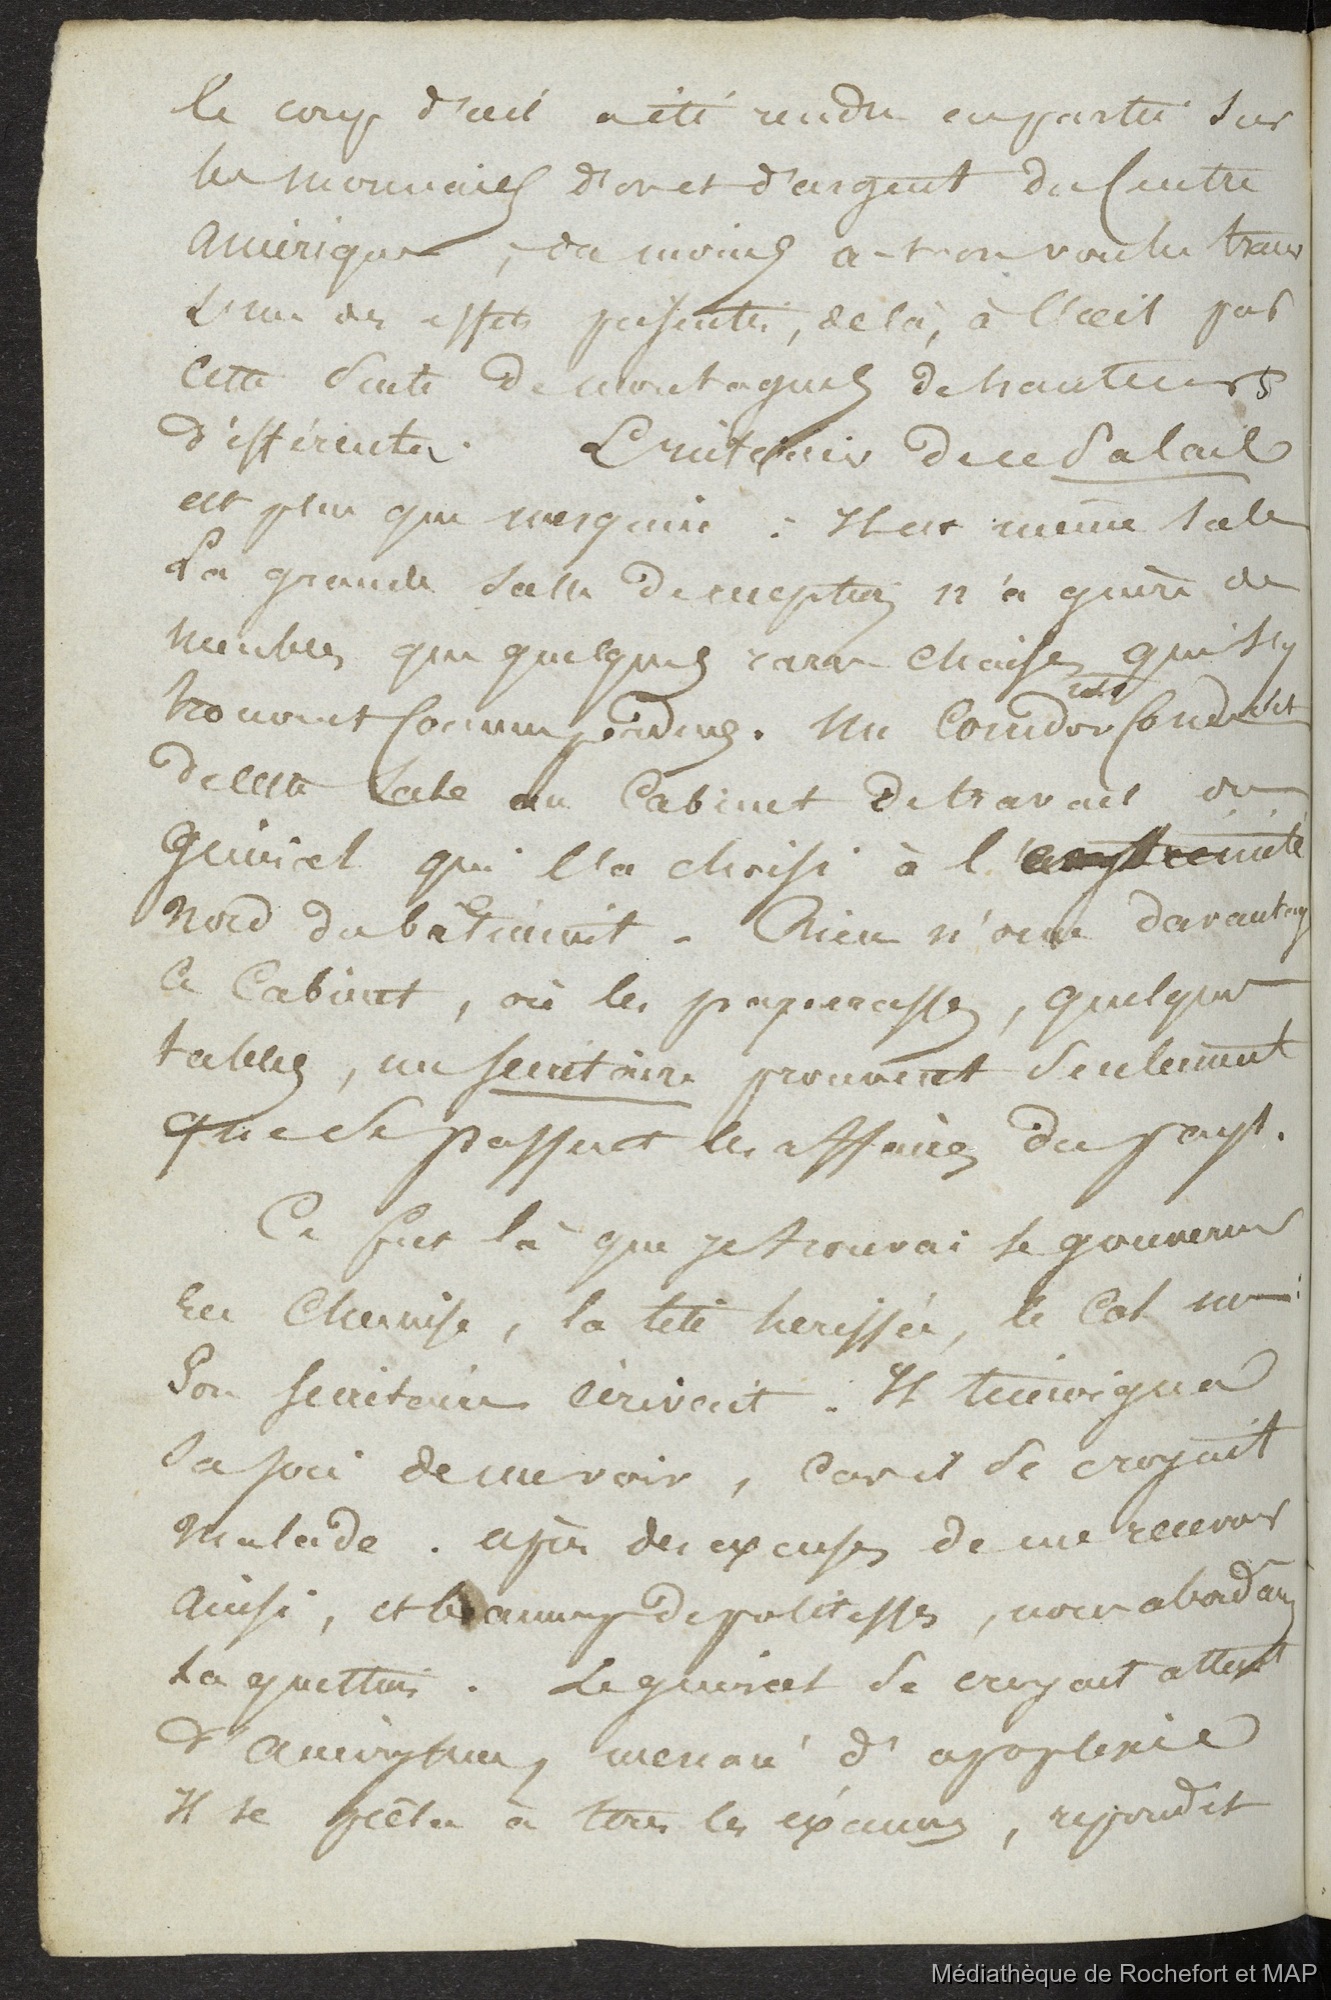 le coup d'œil a été rendu en partie sur
les monnaies d'or et d'argent du Centre
Amérique, du moins a-t-on voulu
l'un des effets présentés, de là, à l'œil par
cette suite de montagnes de hauteurs
différentes. L'intérieur de ce Palais
est plus que mesquin : Il est même sale
La grande salle de réception n'a guère de
meubles que quelques rares chaises qui s'y
trouvent comme perdues. Un Corridor conduisit
de cette salle au Cabinet de travail du
Général qui l'a choisi à l'extrémité
Nord du bâtiment. Rien n'orne davantage
ce Cabinet, où les paperasses, quelques
tables, un secrétaire prouvent seulement
que se passent les affaires du pays.
Ce fut là que je trouvai le gouverneur
en Chemise, la tête herissée, le Col nu :
Son secrétaire écrivait. Il témoigna
sa joie de me voir, car il se croyait
malade. après des excuses de me recevoir
ainsi, et beaucoup de politesses, nous abordâmes
la question. Le général se croyait atteint
d'anévrysme, menacé d'apoplexie
Il se prêta à tous les éxamens, repondit
Médiathèque de Rochefort et MAP